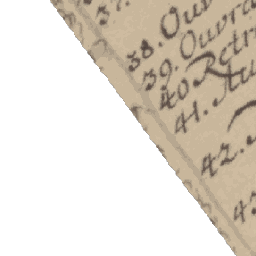 37.
38. Ouv
39. Ouvra
40 Retr
41. Au
42.
43